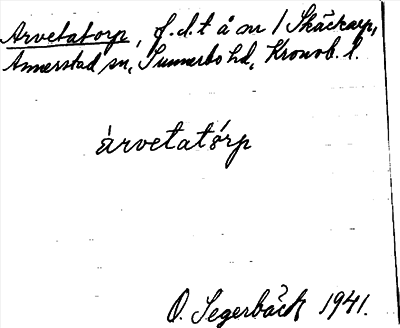 Arvetatorp, f.d.t å m / Skäckarp,
Annerstad sn, Sunnerbo hd, Kronob. l.
árvetatórp
O. Segerbäck 1941.